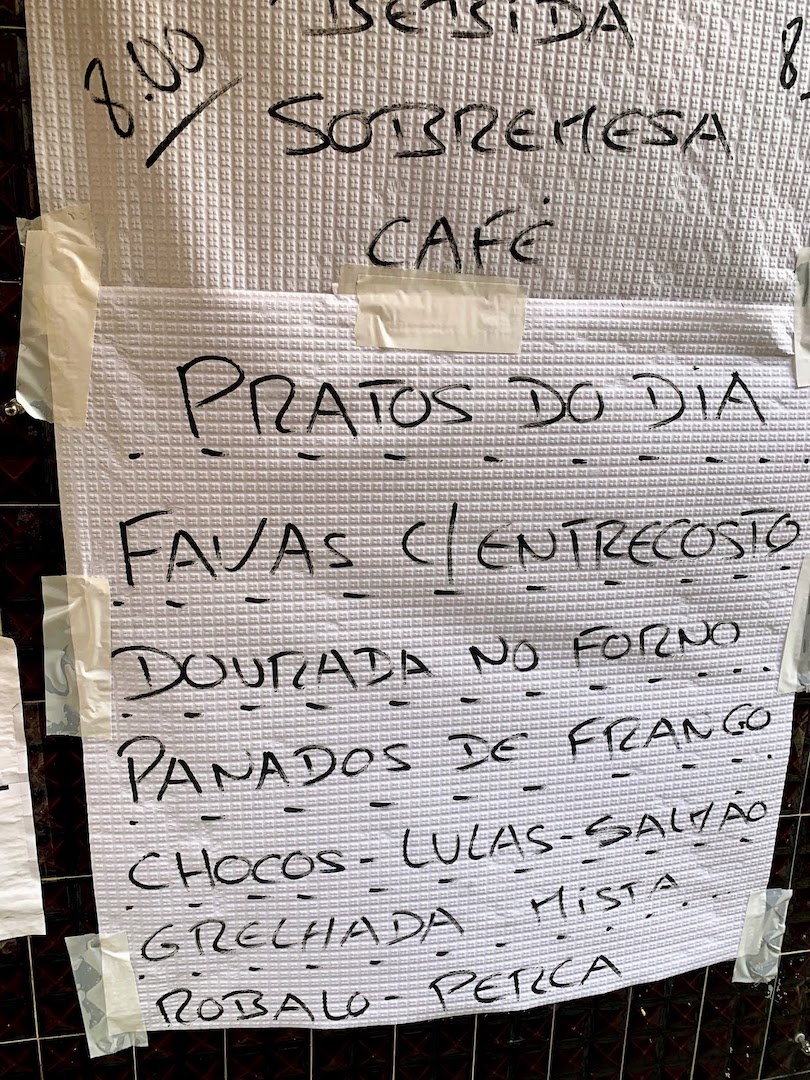 BEBIDA
8.00/ SOBREMESA
CAFÉ
PRATOS DO DIA
FAVAS C/ ENTRECOSTO
DOURADA NO FORNO
PANADOS DE FRANGO
CHOCOS - LULAS - SALMÃO
GRELHADA MISTA
ROBALO - PERCA